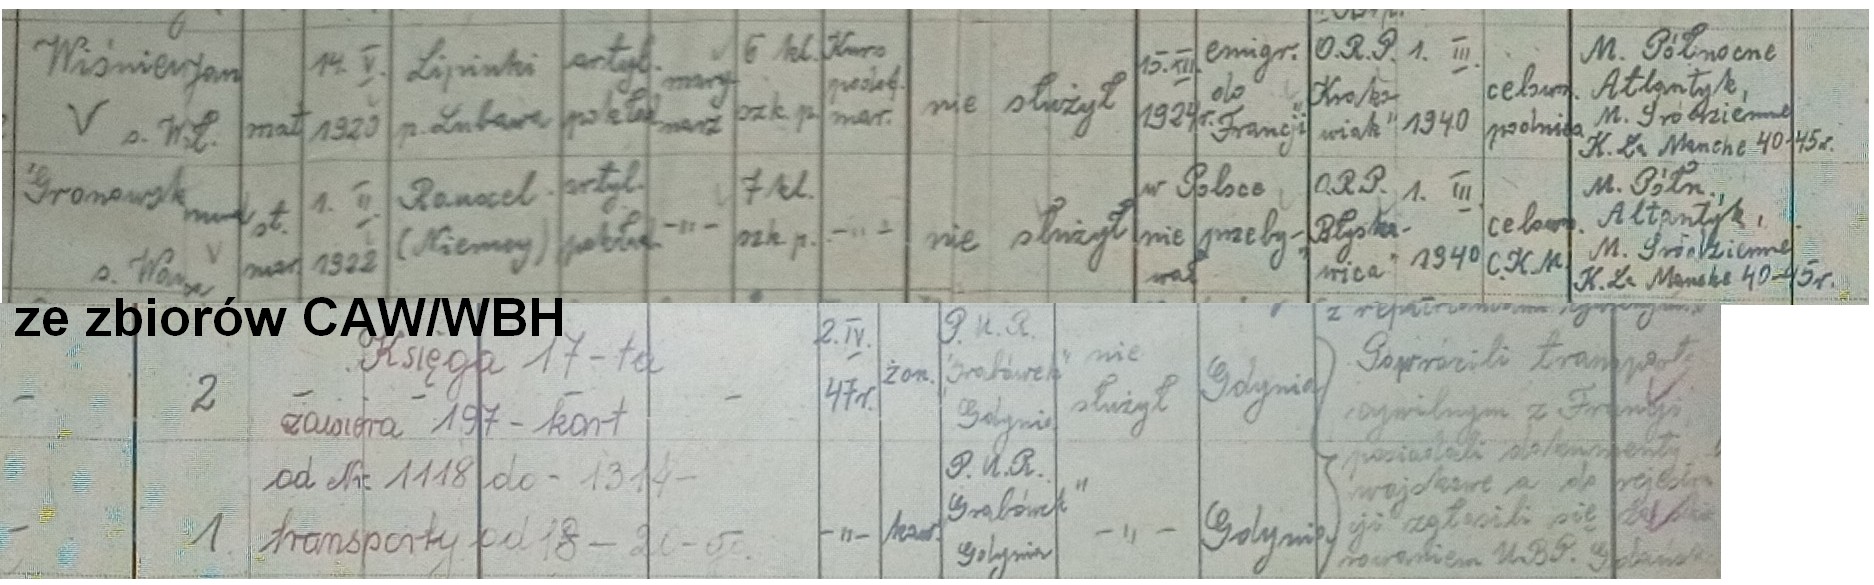 Wiśniew Jan 14. V. Lipinki artyl. mary 6 kl. Kurs 15. XII. emigr. O.R.P. 1. III. M. Północne
V s. Wł. mat 1920 p. Lubawa pokład. marz szk. p. podof. mar. nie służył 1924r. do Francji "Krakowiak" 1940 celown. Atlantyk,
M. Śródziemne
K. La Manche 40-45r.
Gronowsk st. 1. II. Rauxel artyl. 7 kl. w Polsce O.R.P. 1. III. M. Półn.,
s. mar. 1922 (Niemcy) pokład. -"- szk. p. -"- nie służył nie przebywał "Błyskawica" 1940 celown. C.K.M. Altantyk,
M. Śródziemne
K. La Manche 40-45r.
ze zbiorów CAW/WBH
2.IV. P.U.R. z
- 2 Księga 17-ta - 47r. żon. "Grabówek" nie Gdynia transport
zawiera - 197 - kart Gdynia służył cywilnym z Francji
od Nr. 1118 do - 1314 - P.U.R. posiadali dokumenty
- 1. transporty od 18 - -"- kaw. Grabówek" -"- Gdynia wojskowe a do
Gdynia zgłosili się
U.B.P. Gdańsk